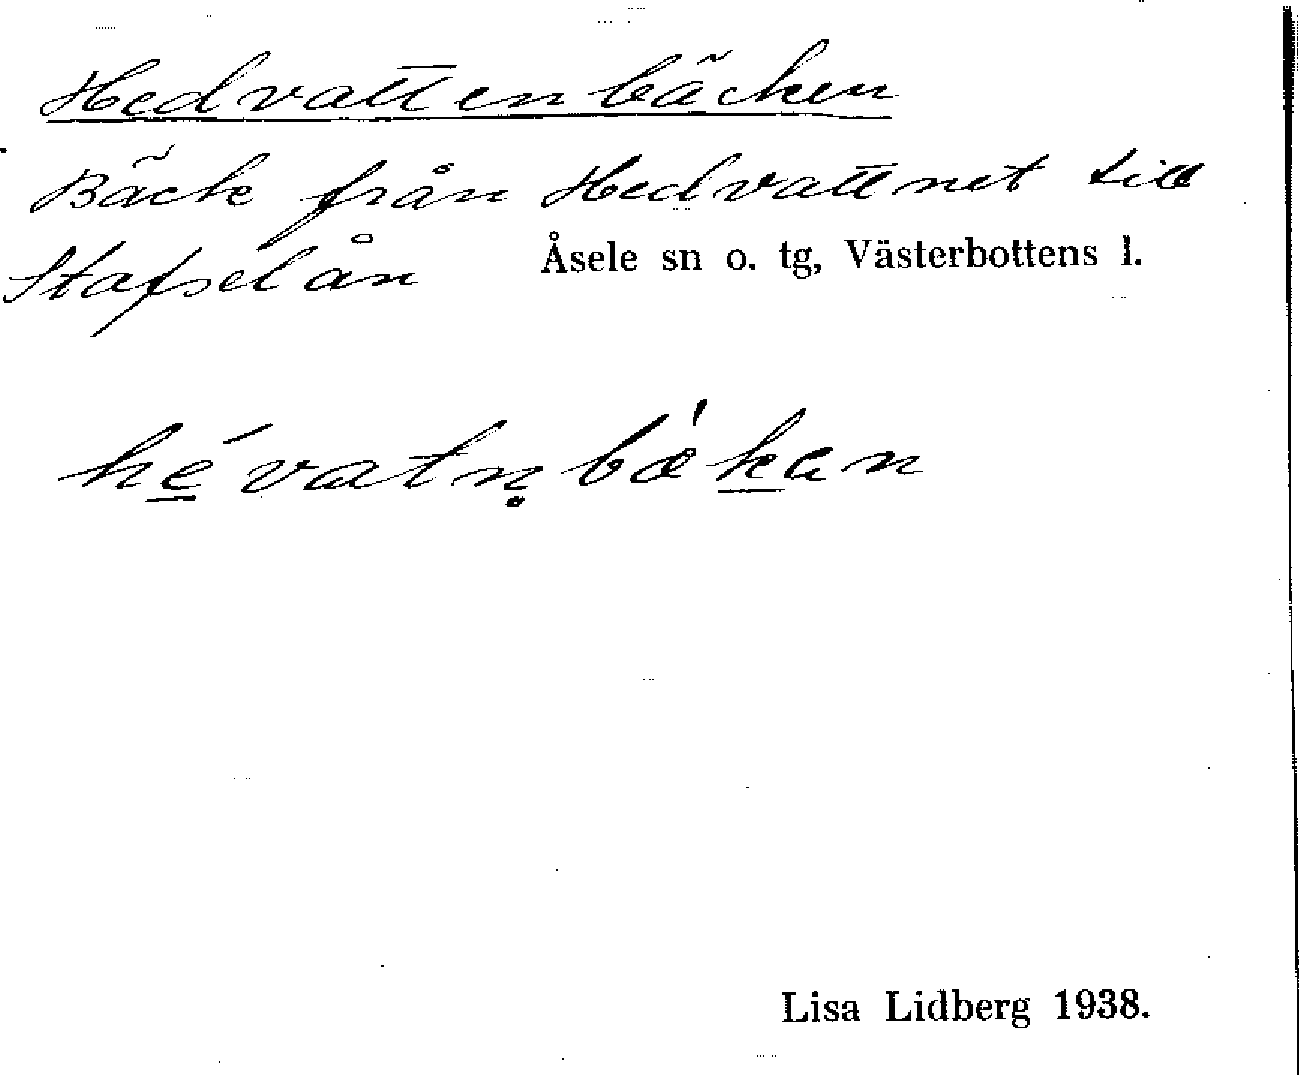 Hedvattenbäcken
Bäck från Hedvattnet till
Stafselån Åsele sn o. tg, Västerbottens l.
hévatṇbǽkan
Lisa Lidberg 1938.